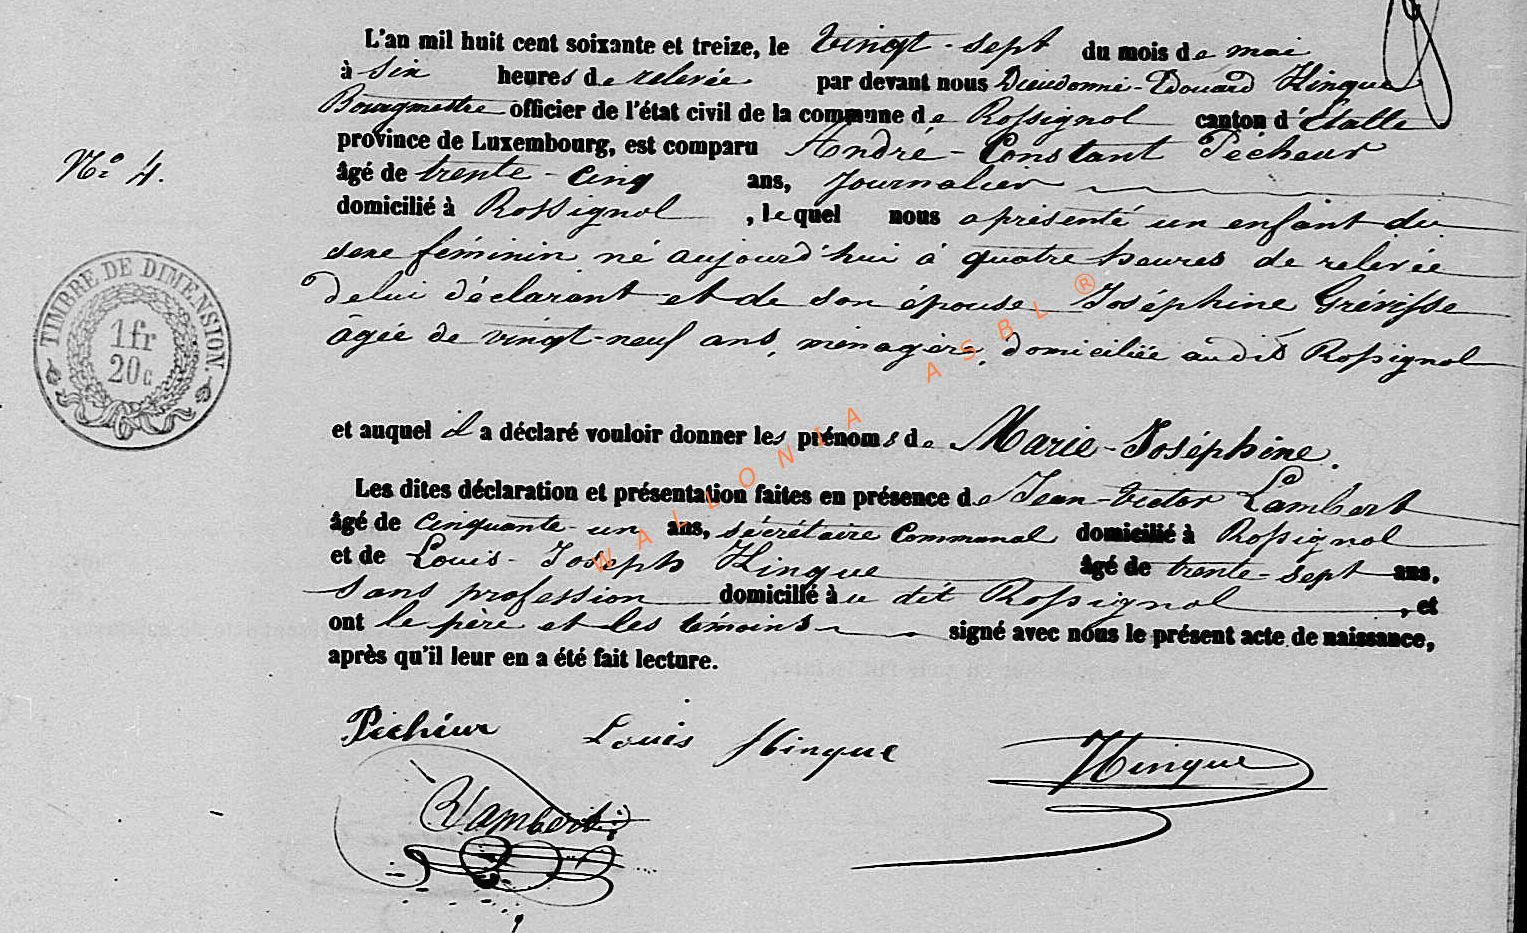 L'an mil huit cent soixante et treize, le vingt-sept du mois de mai
à six heures de relevée par devant nous Dieudonné-Edouard Hinque
Bourgmestre officier de l'état civil de la commune de Rossignol canton d'Etalle
province de Luxembourg, est comparu André-Constant Pécheur
N° 4.
âgé de trente-cinq ans, journalier
domicilié à Rossignol, lequel nous a présenté un enfant du
sexe féminin né aujourd'hui à quatre heures de relevée
de lui déclarant et de son épouse Joséphine Grévisse
âgée de vingt-neuf ans, ménagère, domiciliée audit Rossignol
TIMBRE DE DIMENSION.
1 fr
20 c
et auquel il a déclaré vouloir donner les prénoms de Marie-Joséphine.
Les dites déclaration et présentation faites en présence de Jean-Victor Lambert
âgé de cinquante-un ans, sécrétaire Communal domicilié à Rossignol
et de Louis-Joseph Hinque âgé de trente-sept ans,
sans profession domicilié au dit Rossignol, et
ont le père et les témoins signé avec nous le présent acte de naissance,
après qu'il leur en a été fait lecture.
Pécheur Louis Hinque Hinque
Lambert
WALLONIA ASBL ®